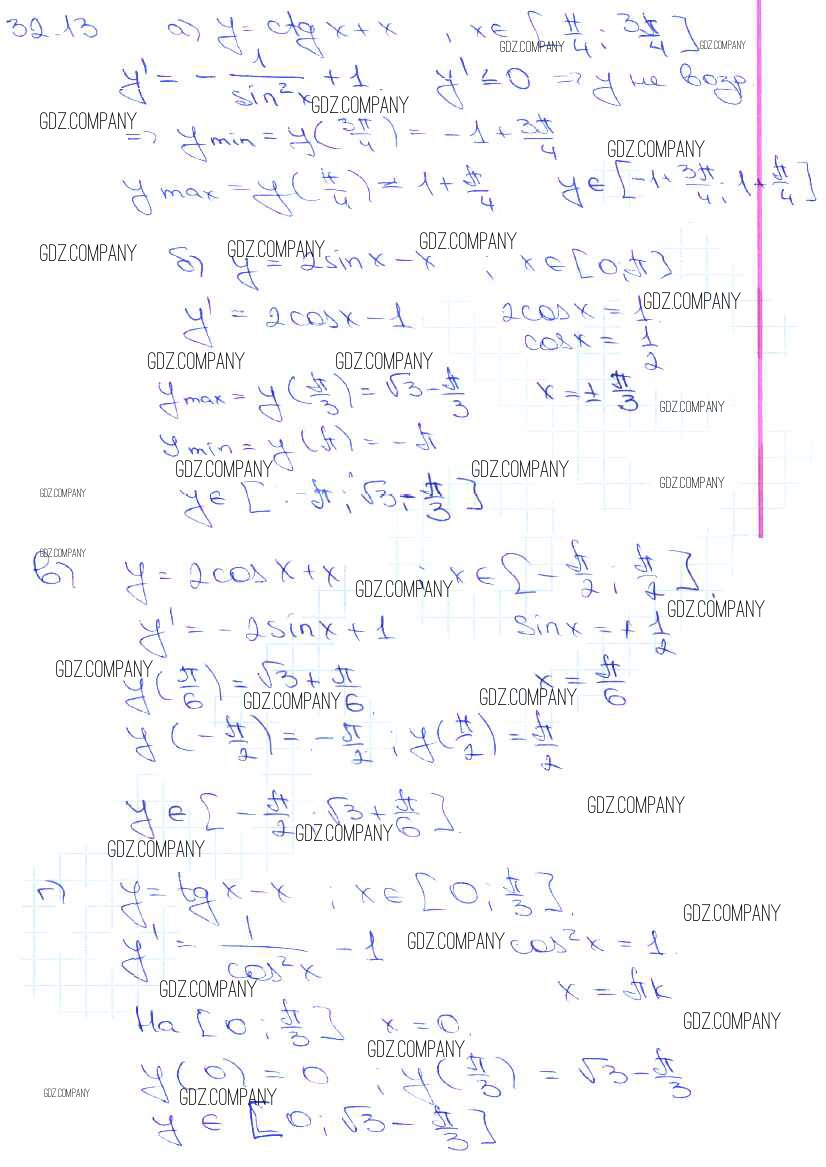 32.13 а) y = ctg x + x , x ∈ [π/4 ; 3π/4]
GDZ.COMPANY GDZ.COMPANY
y' = - 1/sin²x + 1 y' ≤ 0 => y не возр
GDZ.COMPANY GDZ.COMPANY
=> y min = y(3π/4) = -1 + 3π/4
GDZ.COMPANY
y max = y(π/4) = 1 + π/4 y ∈ [-1 + 3π/4 ; 1 + π/4]
GDZ.COMPANY GDZ.COMPANY GDZ.COMPANY
б) y = 2sinx - x ; x ∈ [0; π]
y' = 2cosx - 1 2cosx = 1
GDZ.COMPANY
cosx = 1/2
GDZ.COMPANY GDZ.COMPANY
y max = y(π/3) = √3 - π/3 x = ± π/3
GDZ.COMPANY
y min = y(π) = -π
GDZ.COMPANY GDZ.COMPANY GDZ.COMPANY
GDZ.COMPANY
y ∈ [-π ; √3 - π/3]
GDZ.COMPANY
в) y = 2cosx + x ; x ∈ [-π/2 ; π/2].
GDZ.COMPANY GDZ.COMPANY
y' = -2sinx + 1 sinx = + 1/2
GDZ.COMPANY
y(π/6) = √3 + π/6. x = π/6
GDZ.COMPANY GDZ.COMPANY
y(-π/2) = -π/2 ; y(π/2) = π/2
GDZ.COMPANY
y ∈ [-π/2 ; √3 + π/6].
GDZ.COMPANY
GDZ.COMPANY
г) y = tgx - x ; x ∈ [0 ; π/3].
GDZ.COMPANY
y' = 1/cos²x - 1 cos²x = 1.
GDZ.COMPANY
GDZ.COMPANY
x = πk
На [0 ; π/3] x = 0.
GDZ.COMPANY
GDZ.COMPANY
y(0) = 0 ; y(π/3) = √3 - π/3
GDZ.COMPANY GDZ.COMPANY
y ∈ [0 ; √3 - π/3]